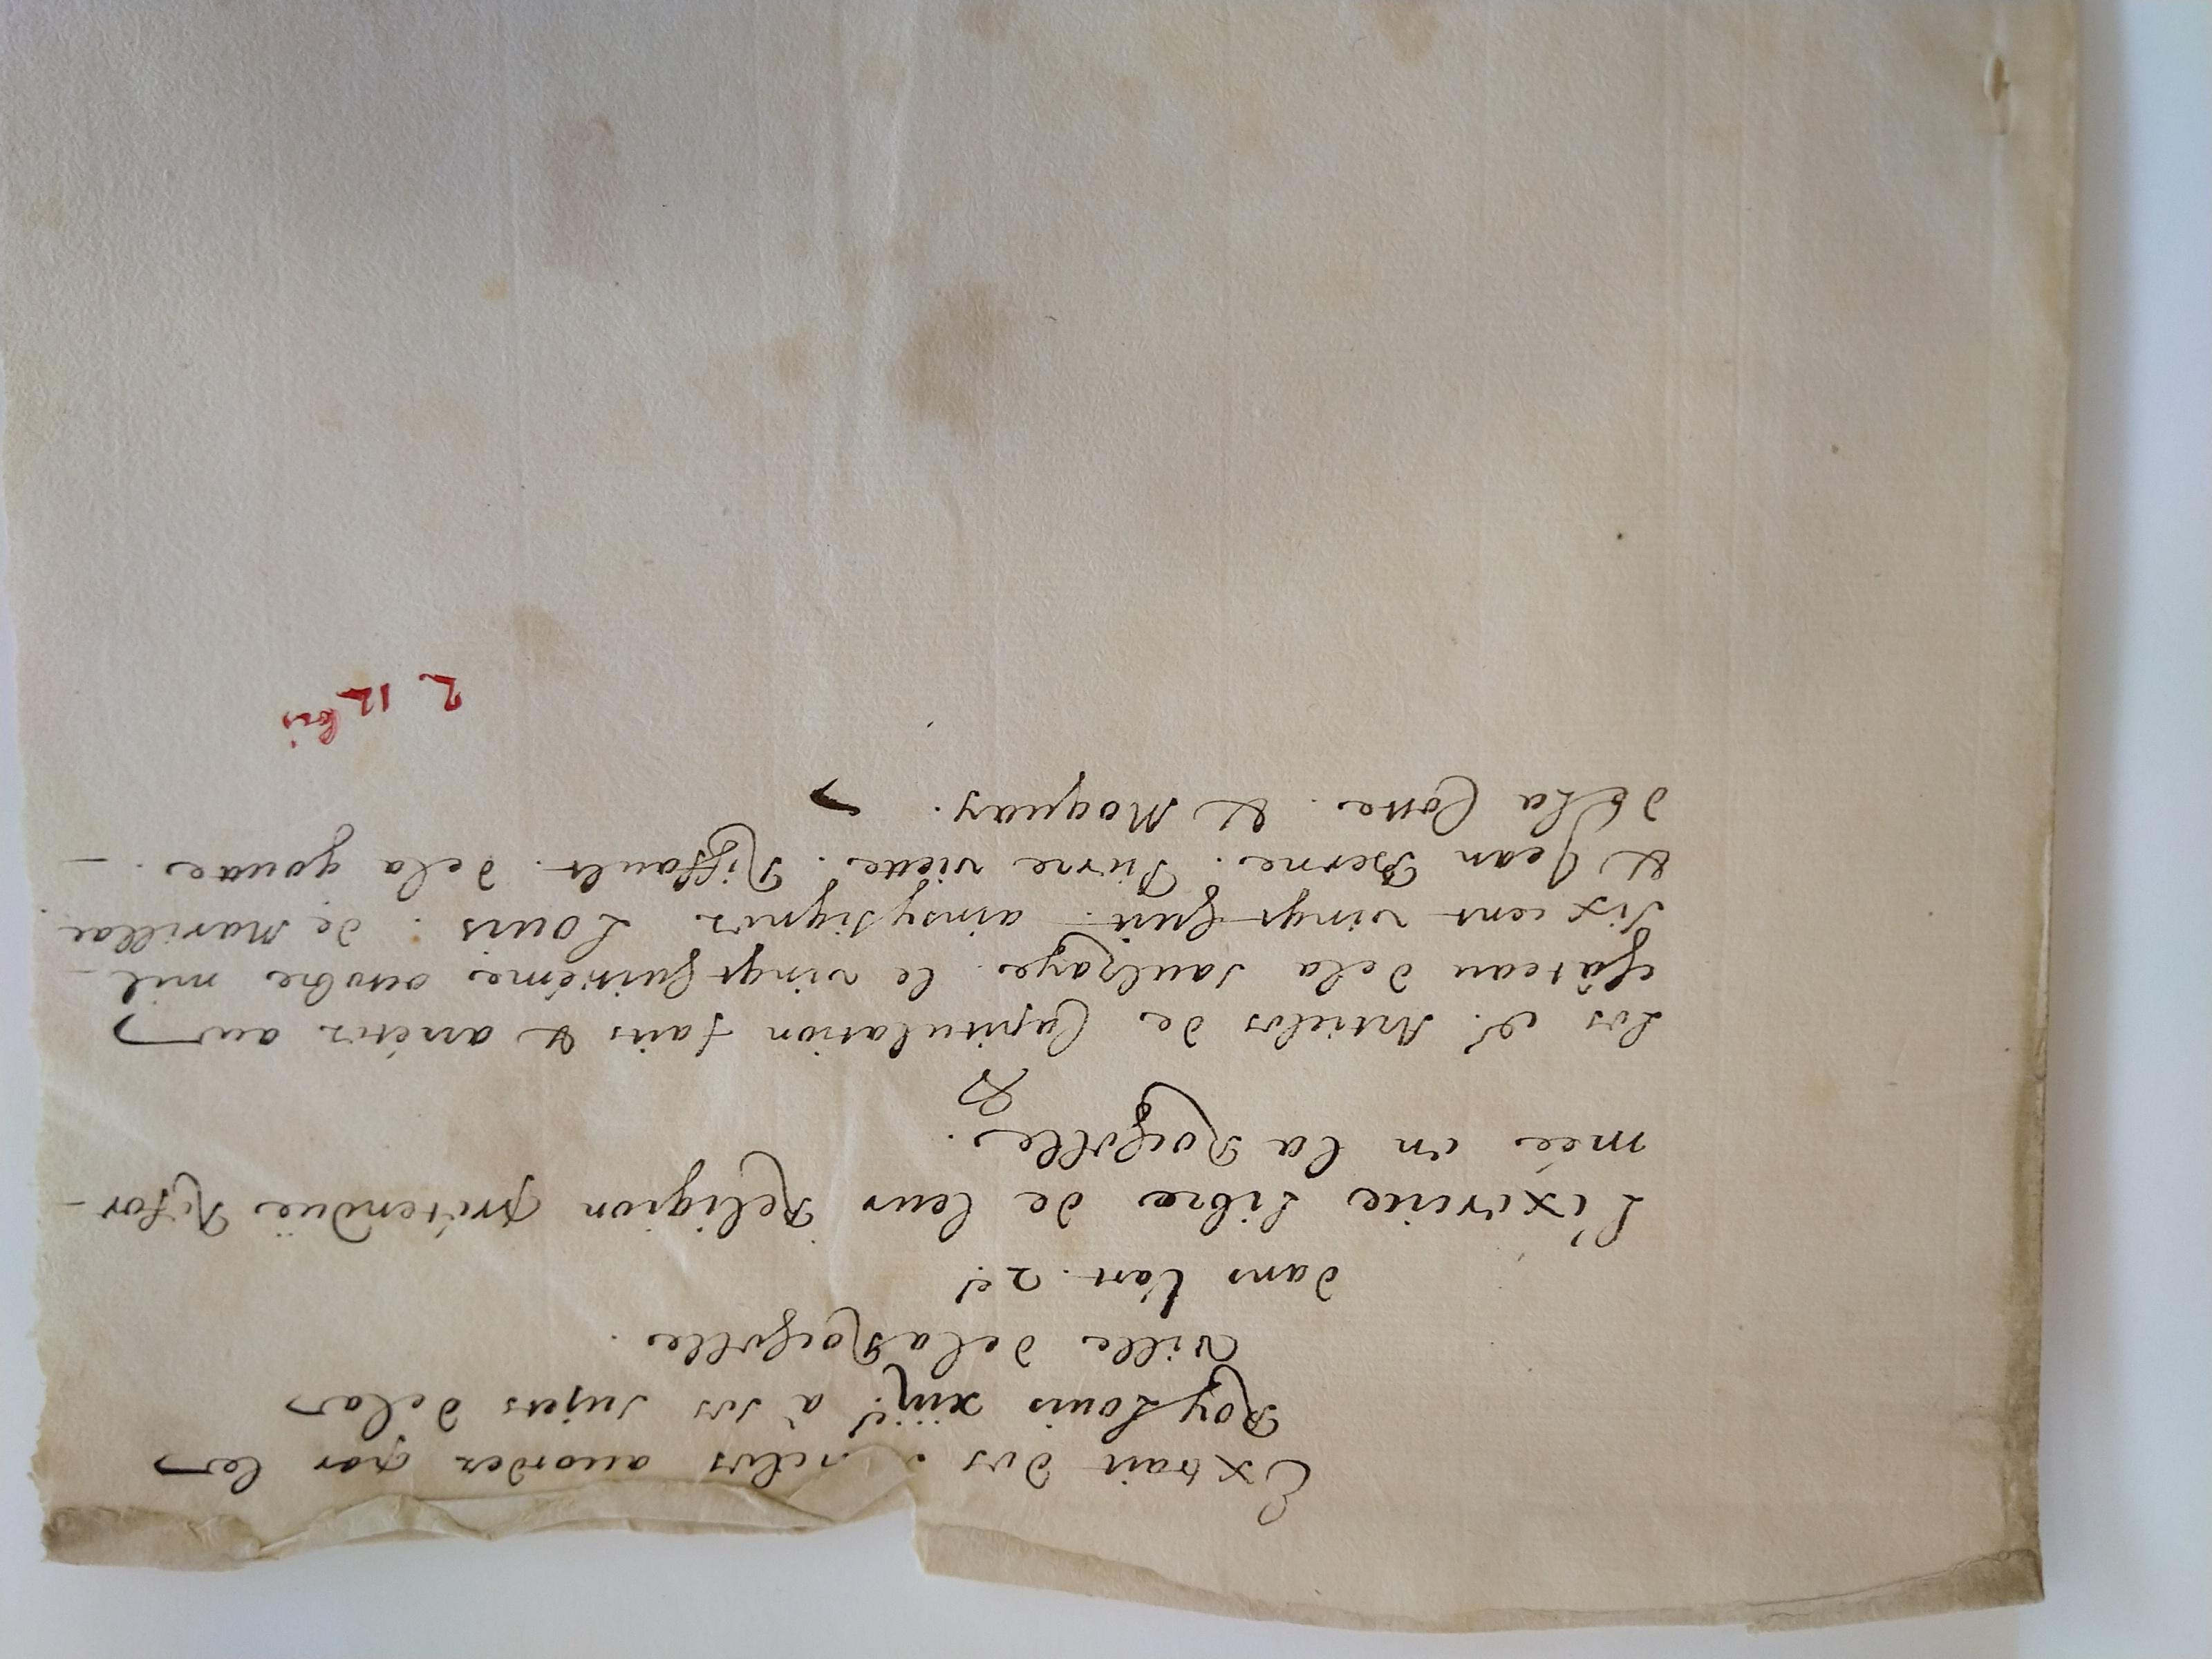 Extrait des accordez par le
Roy Louis xiii.e à ses sujets dela
Ville dela Rochelle.
dans l'art. 2.e
L'exercice libre de leur Religion prétendüe Refor-
mée en la Rochelle.
Les d. Articles de Capitulation faits & arrétez au
château dela saulzaye le vingt huitiéme octobre mil
six cent vingt huit. ainsy signez Louis. de Marillac
& Jean Berne. Pierre viette. Riffault. dela goutte.
dela Coste. & Moquay.
2 12 bis